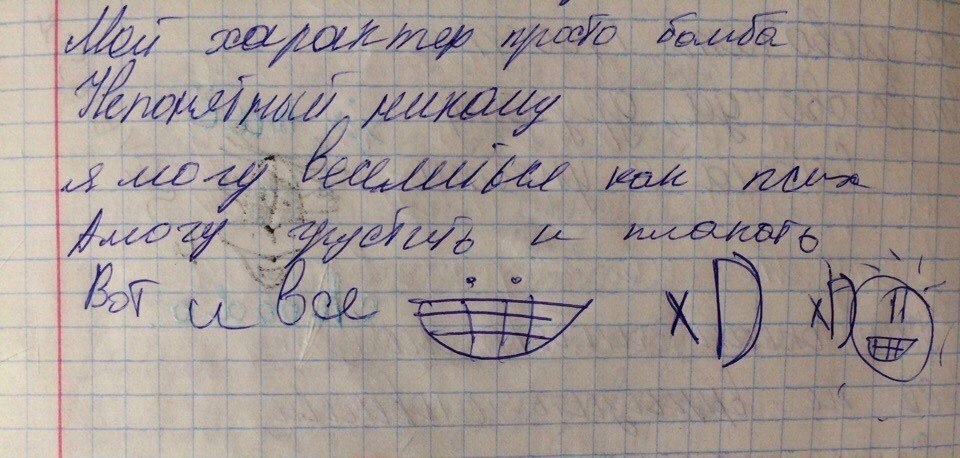 Мой характер просто бомба
Непонятный никому
я могу веселиться как псих
А могу грустить и плакать
Вот и все xD xD